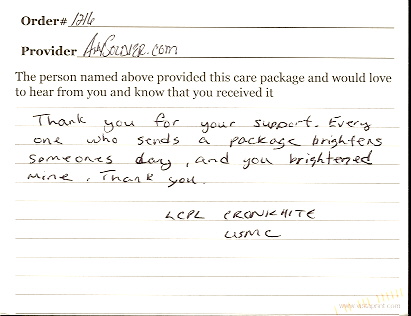 Order# 1216
Provider AnySoldier.com
The person named above provided this care package and would love
to hear from you and know that you received it
Thank you for your support. Every
one who sends a package brightens
someones day, and you brightened
mine. Thank you.
LCPL CRONKHITE
USMC